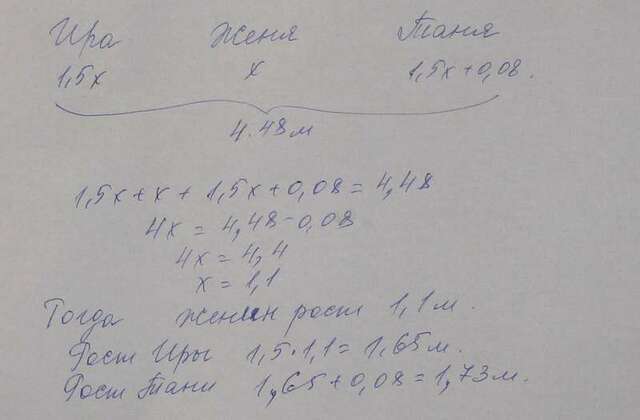 Ира Женя Таня
1,5x x 1,5x+0,08.
4.48м
1,5x+x+1,5x+0,08=4,48
4x=4,48-0,08
4x=4,4
x=1,1
Тогда женин рост 1,1м.
Рост Иры 1,5·1,1=1,65м.
Рост Тани 1,65+0,08=1,73м.